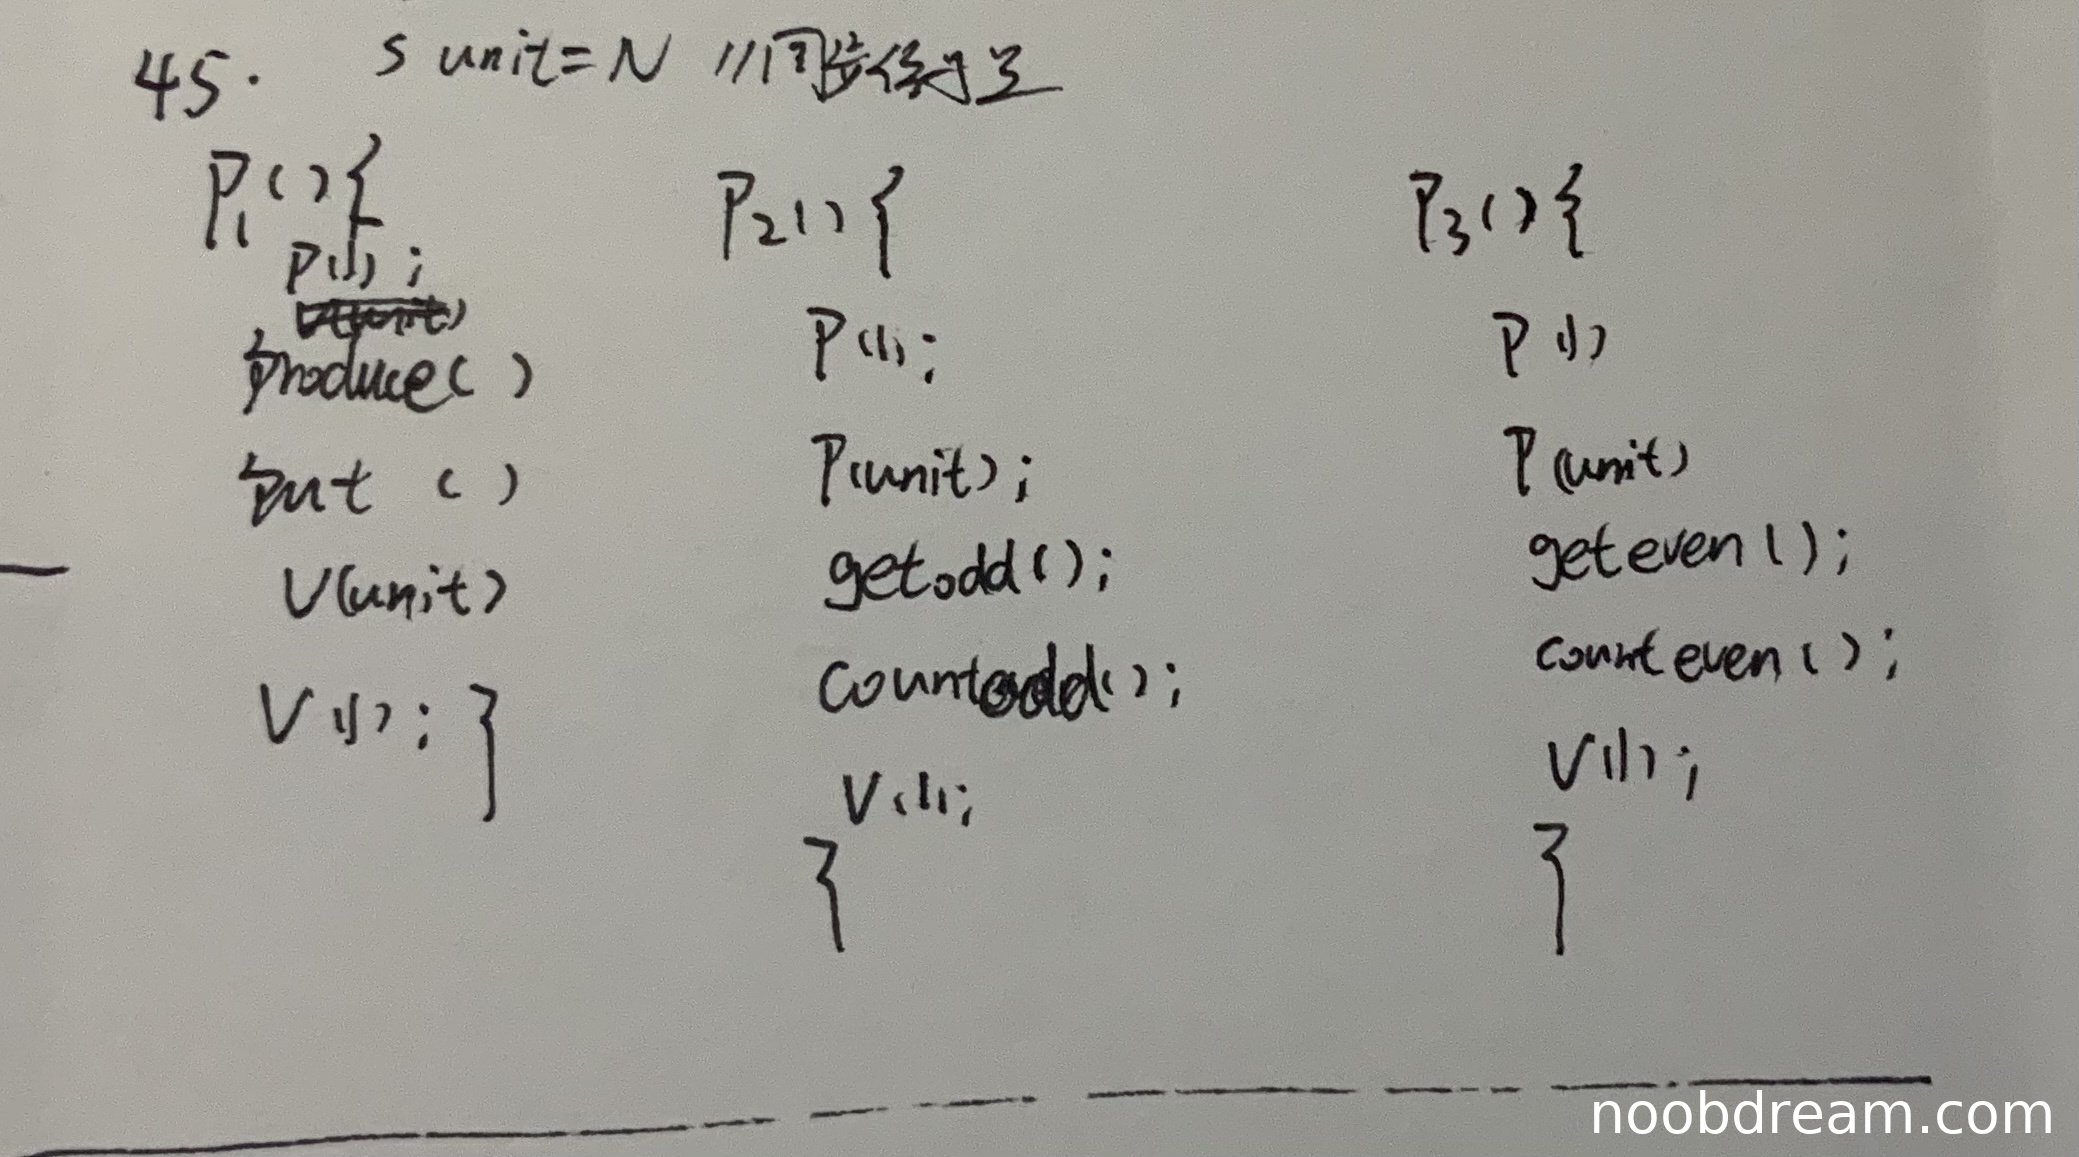 45. S unit=N //同步信号量
P1(){
P(1);
produce()
put ()
V(unit)
V(1); }
P2(){
P(1);
P(unit);
getodd();
countodd();
V(1);
}
P3(){
P(1)
P(unit)
geteven();
counteven();
V(1);
}
noobdream.com